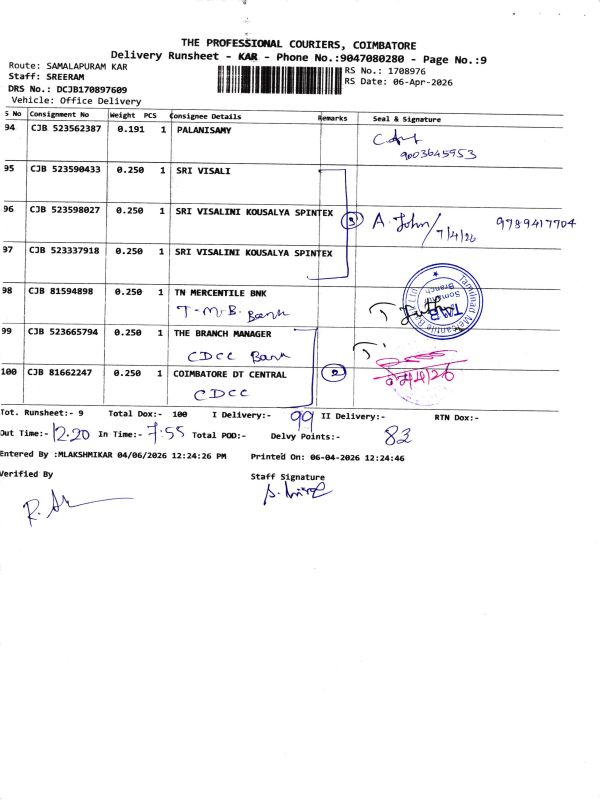 THE PROFESSIONAL COURIERS, COIMBATORE
Delivery Runsheet - KAR - Phone No.:9047080280 - Page No.:9
Route: SAMALAPURAM KAR
RS No.: 1708976
Staff: SREERAM
RS Date: 06-Apr-2026
DRS No.: DCJB170897609
Vehicle: Office Delivery
S No Consignment No Weight PCS Consignee Details Remarks Seal & Signature
94 CJB 523562387 0.191 1 PALANISAMY
9003645953
95 CJB 523590433 0.250 1 SRI VISALI
96 CJB 523598027 0.250 1 SRI VISALINI KOUSALYA SPINTEX 3 A. John / 7/4/26 9789417704
97 CJB 523337918 0.250 1 SRI VISALINI KOUSALYA SPINTEX
98 CJB 81594898 0.250 1 TN MERCENTILE BNK
T-M.B. Bank
Tamilnad Mercantile Bank Ltd
TMB
Somanur
Branch
99 CJB 523665794 0.250 1 THE BRANCH MANAGER
CDCC Bank
100 CJB 81662247 0.250 1 COIMBATORE DT CENTRAL 2
CDCC
Tot. Runsheet:- 9 Total Dox:- 100 I Delivery:- 99 II Delivery:- RTN Dox:-
Out Time:- 12.20 In Time:- 7:55 Total POD:- Delvy Points:- 83
Entered By :MLAKSHMIKAR 04/06/2026 12:24:26 PM Printed On: 06-04-2026 12:24:46
Verified By
Staff Signature